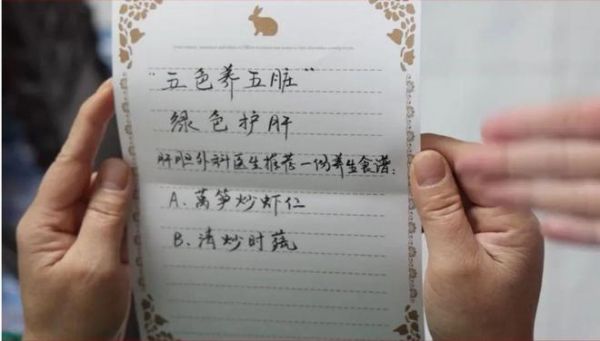 “五色养五脏”
绿色护肝
肝胆外科医生推荐一份养生食谱：
A. 莴笋炒虾仁
B. 清炒时蔬